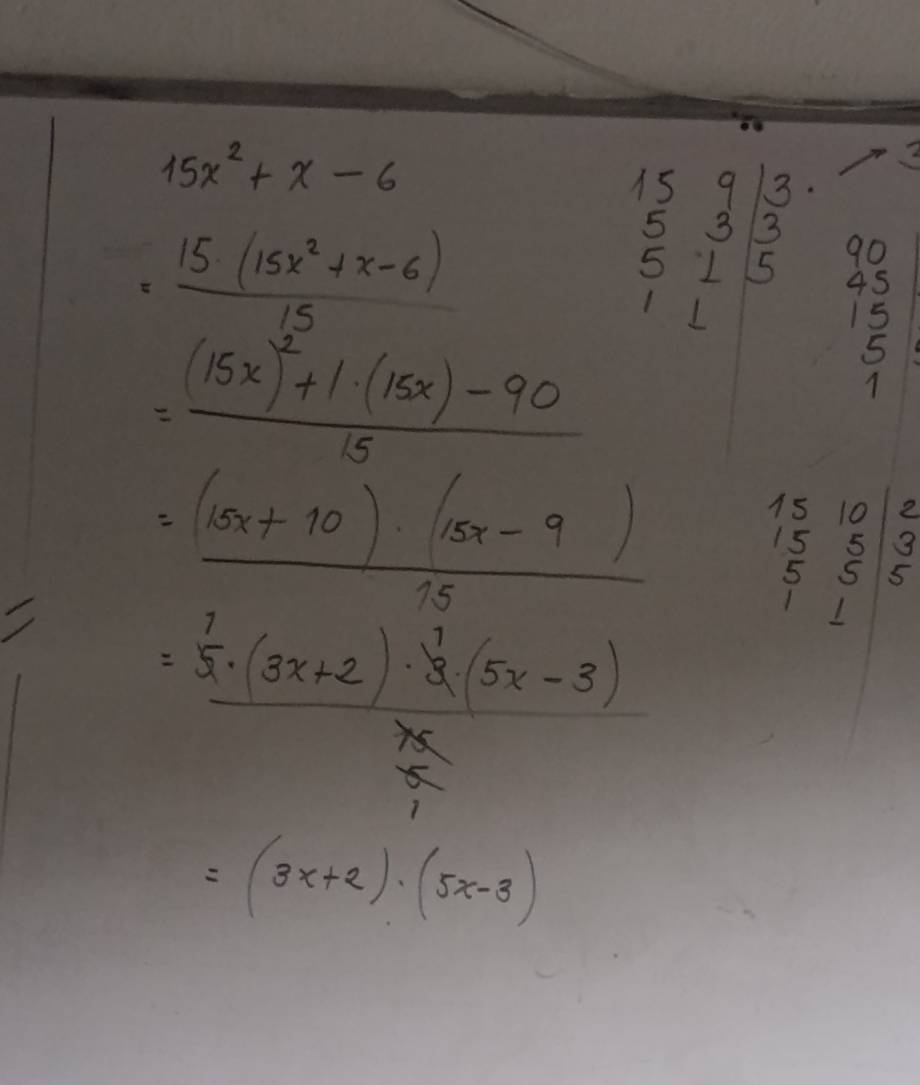 15x² + x - 6
= 15 · (15x² + x - 6)
15
= (15x)² + 1 · (15x) - 90
15
= (15x + 10) · (15x - 9)
15
= 5 · (3x + 2) · 3 · (5x - 3)
1 1
15
5
1
= (3x + 2) · (5x - 3)
15 9 | 3 ·
5 3 | 3
5 1 | 5
1 1
90
45
15
5
1
15 10 | 2
15 5 | 3
5 5 | 5
1 1